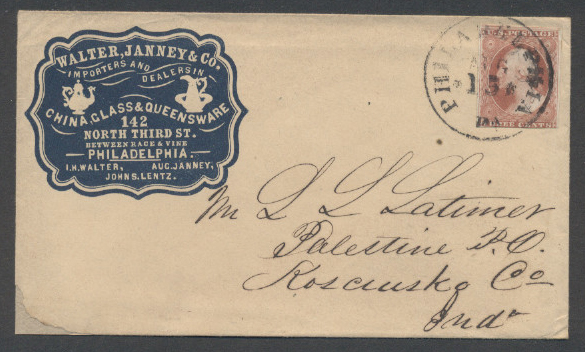 WALTER, JANNEY & CO.
IMPORTERS AND
DEALERS IN
CHINA, GLASS & QUEENSWARE
142
NORTH THIRD ST.
BETWEEN RACE & VINE
PHILADELPHIA.
I.H. WALTER, AUG. JANNEY,
JOHN S. LENTZ.
PHILADELPHIA
15
CENTS
Mr L L Latimer
Palestine P.O.
Kosciusko Co
Inda